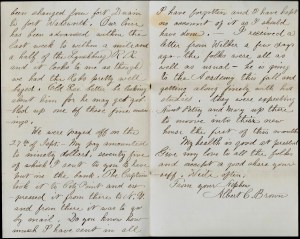 been changed from fort Drain
to fort McKeen. Our line
has been advanced within the
last week to within a mile and
a half of the Lynchburg R.R.
and it looks to me as though
we had the Rebs pretty well
Old Lee better be taking
about him for he may get gob
bled up one of those fine morn
ings.
We were payed off on the
27th of Sept. My pay amounted
to ninety dollars, seventy five
of which I sent to you to have
put in the bank. The Captain
took it to City Point and ex
pressed it from there to N.Y.
and from there it was to go
by mail. Do you know how
much I have sent in all
I have forgotten and I have kept
no account of it as I should
have done. I received a
letter from Wilbur a few days
ago. The folks were all as
well as usual. He is going
to the Academy this fall and
getting along finely with his
studies. They were expecting
Aunt Mary and May up there
to move into their new
house the first of this month
My health is good at present
Give my love to all the folks
and accept a good share your
self. Write often.
From your Nephew
Albert C. Brown